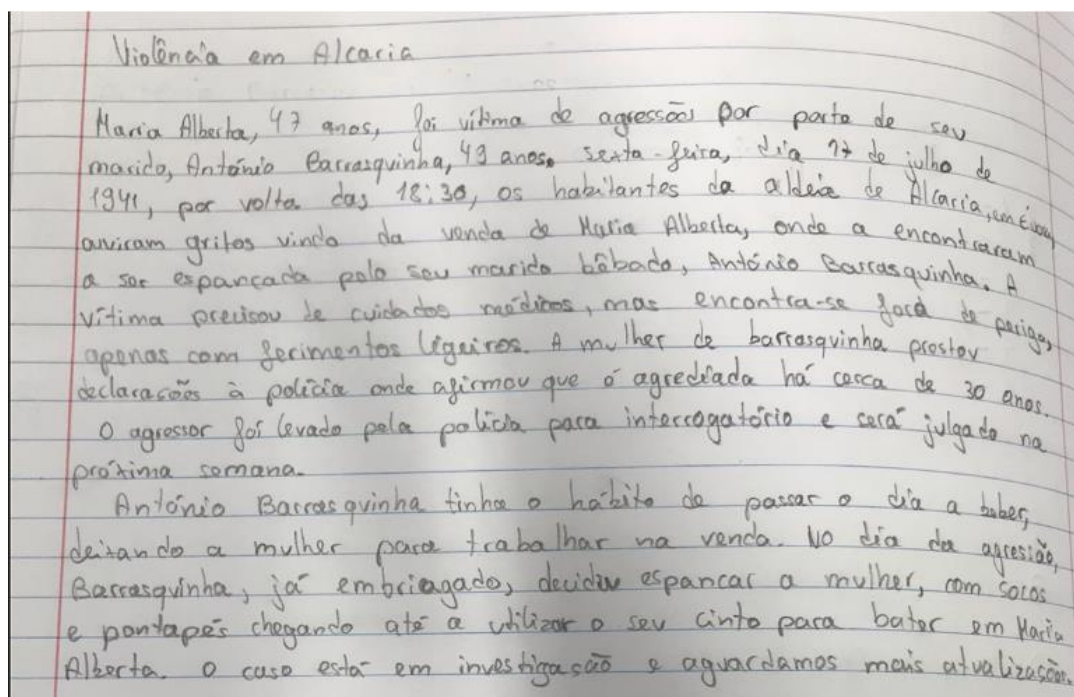 Violência em Alcaria
Maria Alberta, 47 anos, foi vítima de agressões por parte de seu
marido, António Barrasquinha, 49 anos. sexta-feira, dia 17 de julho de
1941, por volta das 18:30, os habitantes da aldeia de Alcaria, em Évora
ouviram gritos vindo da venda de Maria Alberta, onde a encontraram
a ser espancada pelo seu marido bêbado, António Barrasquinha. A
vítima precisou de cuidados médicos, mas encontra-se fora de perigo,
apenas com ferimentos ligeiros. A mulher de barrasquinha prestou
declarações à polícia onde afirmou que é agrediada há cerca de 30 anos.
O agressor foi levado pela polícia para interrogatório e será julgado na
próxima semana.
António Barrasquinha tinha o hábito de passar o dia a beber,
deixando a mulher para trabalhar na venda. No dia da agressão,
Barrasquinha, já embriagado, decidiu espancar a mulher, com socos
e pontapés chegando até a utilizar o seu cinto para bater em Maria
Alberta. O caso está em investigação e aguardamos mais atualizações.